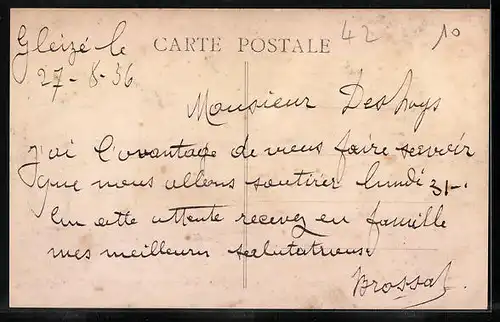 Gleizé le
27-8-36
CARTE POSTALE
42
10
Monsieur Deshays
j'ai l'avantage de vous faire savoir
que nous allons soutirer lundi 31-.
En cette attente recevez en famille
mes meilleurs salutations
Brossat.